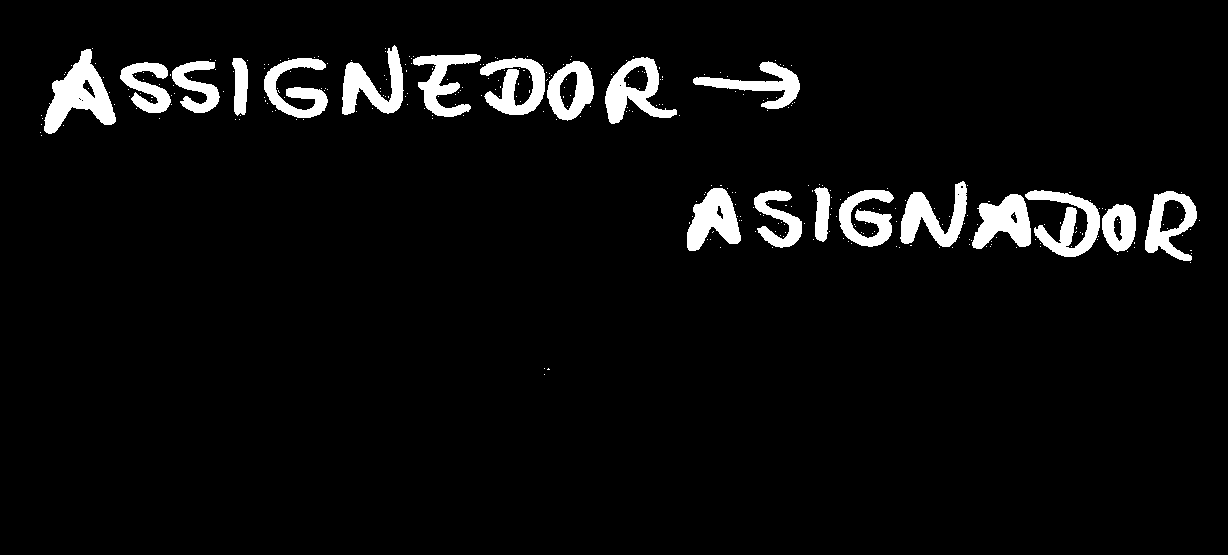 ASSIGNEDOR →
ASIGNADOR